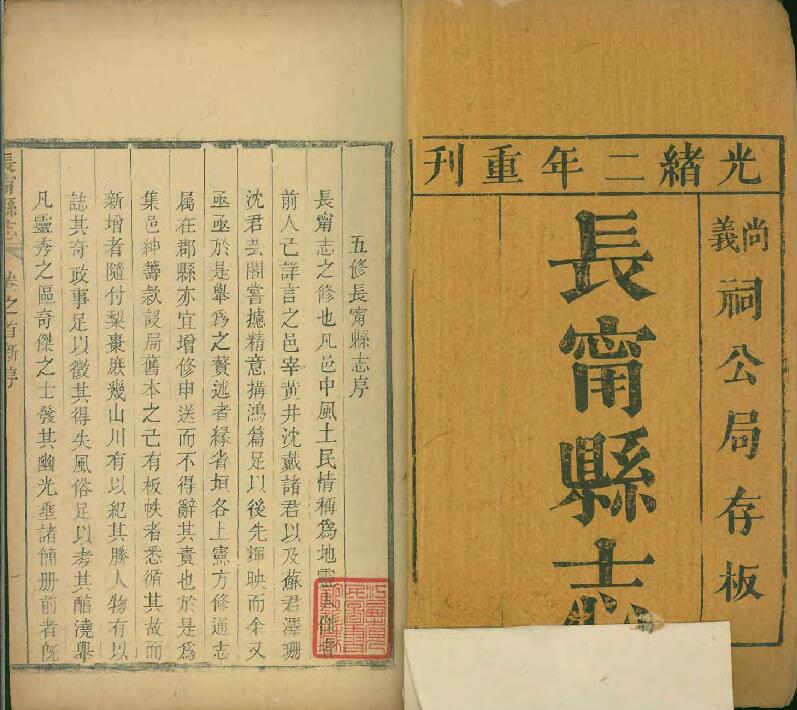 光緒二年重刊
尚義祠公局存板
長甯縣志
五修長甯縣志序
長甯志之修也凡邑中風土民情稱爲地靈人傑者
前人已詳言之邑宰黃井沈戴諸君以及蘇君澤珊
沈君芸閣嘗攄精意搆鴻篇足以後先輝映而余又
亟亟於是舉爲之贅述者緣省垣各上憲方修通志
属在郡縣亦宜增修申送而不得辭其責也於是爲
集邑紳籌款設局舊本之已有板帙者悉循其故而
新增者隨付梨棗庶幾山川有以紀其勝人物有以
誌其奇政事足以徵其得失風俗足以考其醕澆舉
凡靈秀之區奇傑之士發其幽光垂諸簡册前者旣
長甯縣志
卷之首新序
一